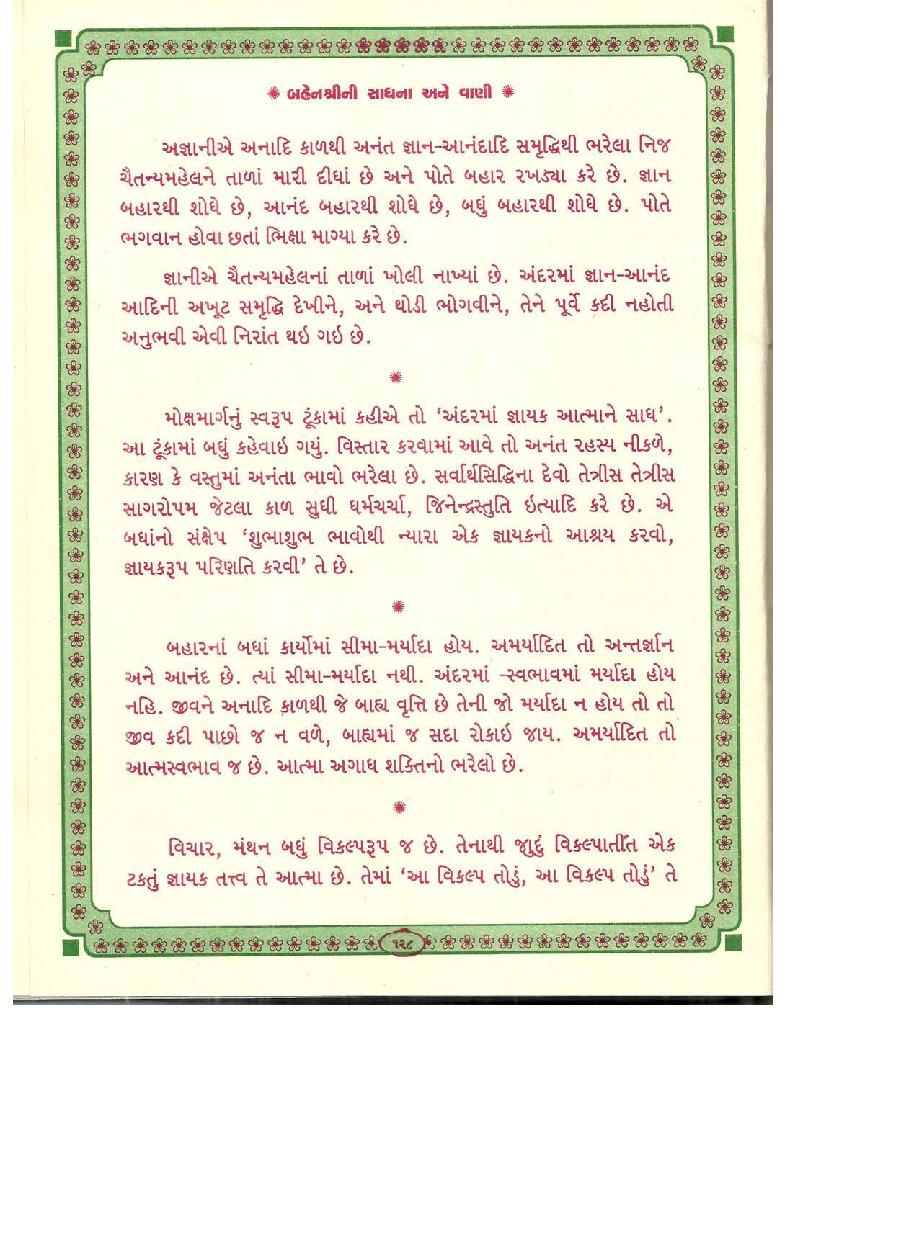 ✺ બહેનશ્રીની સાધના અને વાણી ✺
અજ્ઞાનીએ અનાદિ કાળથી અનંત જ્ઞાન-આનંદાદિ સમૃદ્ધિથી ભરેલા નિજ
ચૈતન્યમહેલને તાળાં મારી દીધાં છે અને પોતે બહાર રખડ્યા કરે છે. જ્ઞાન
બહારથી શોધે છે, આનંદ બહારથી શોધે છે, બધું બહારથી શોધે છે. પોતે
ભગવાન હોવા છતાં ભિક્ષા માગ્યા કરે છે.
જ્ઞાનીએ ચૈતન્યમહેલનાં તાળાં ખોલી નાખ્યાં છે. અંદરમાં જ્ઞાન-આનંદ
આદિની અખૂટ સમૃદ્ધિ દેખીને, અને થોડી ભોગવીને, તેને પૂર્વે કદી નહોતી
અનુભવી એવી નિરાંત થઇ ગઇ છે.
✺
મોક્ષમાર્ગનું સ્વરૂપ ટૂંકામાં કહીએ તો ‘અંદરમાં જ્ઞાયક આત્માને સાધ’.
આ ટૂંકામાં બધું કહેવાઇ ગયું. વિસ્તાર કરવામાં આવે તો અનંત રહસ્ય નીકળે,
કારણ કે વસ્તુમાં અનંતા ભાવો ભરેલા છે. સર્વાર્થસિદ્ધિના દેવો તેત્રીસ તેત્રીસ
સાગરોપમ જેટલા કાળ સુધી ધર્મચર્ચા, જિનેન્દ્રસ્તુતિ ઇત્યાદિ કરે છે. એ
બધાંનો સંક્ષેપ ‘શુભાશુભ ભાવોથી ન્યારા એક જ્ઞાયકનો આશ્રય કરવો,
જ્ઞાયકરૂપ પરિણતિ કરવી’ તે છે.
✺
બહારનાં બધાં કાર્યોમાં સીમા-મર્યાદા હોય. અમર્યાદિત તો અન્તર્જ્ઞાન
અને આનંદ છે. ત્યાં સીમા-મર્યાદા નથી. અંદરમાં -સ્વભાવમાં મર્યાદા હોય
નહિ. જીવને અનાદિ કાળથી જે બાહ્ય વૃત્તિ છે તેની જો મર્યાદા ન હોય તો તો
જીવ કદી પાછો જ ન વળે, બાહ્યમાં જ સદા રોકાઇ જાય. અમર્યાદિત તો
આત્મસ્વભાવ જ છે. આત્મા અગાધ શક્તિનો ભરેલો છે.
✺
વિચાર, મંથન બધું વિકલ્પરૂપ જ છે. તેનાથી જુાદું વિકલ્પાતીત એક
ટકતું જ્ઞાયક તત્ત્વ તે આત્મા છે. તેમાં ‘આ વિકલ્પ તોડું, આ વિકલ્પ તોડું’ તે
૧૨૮